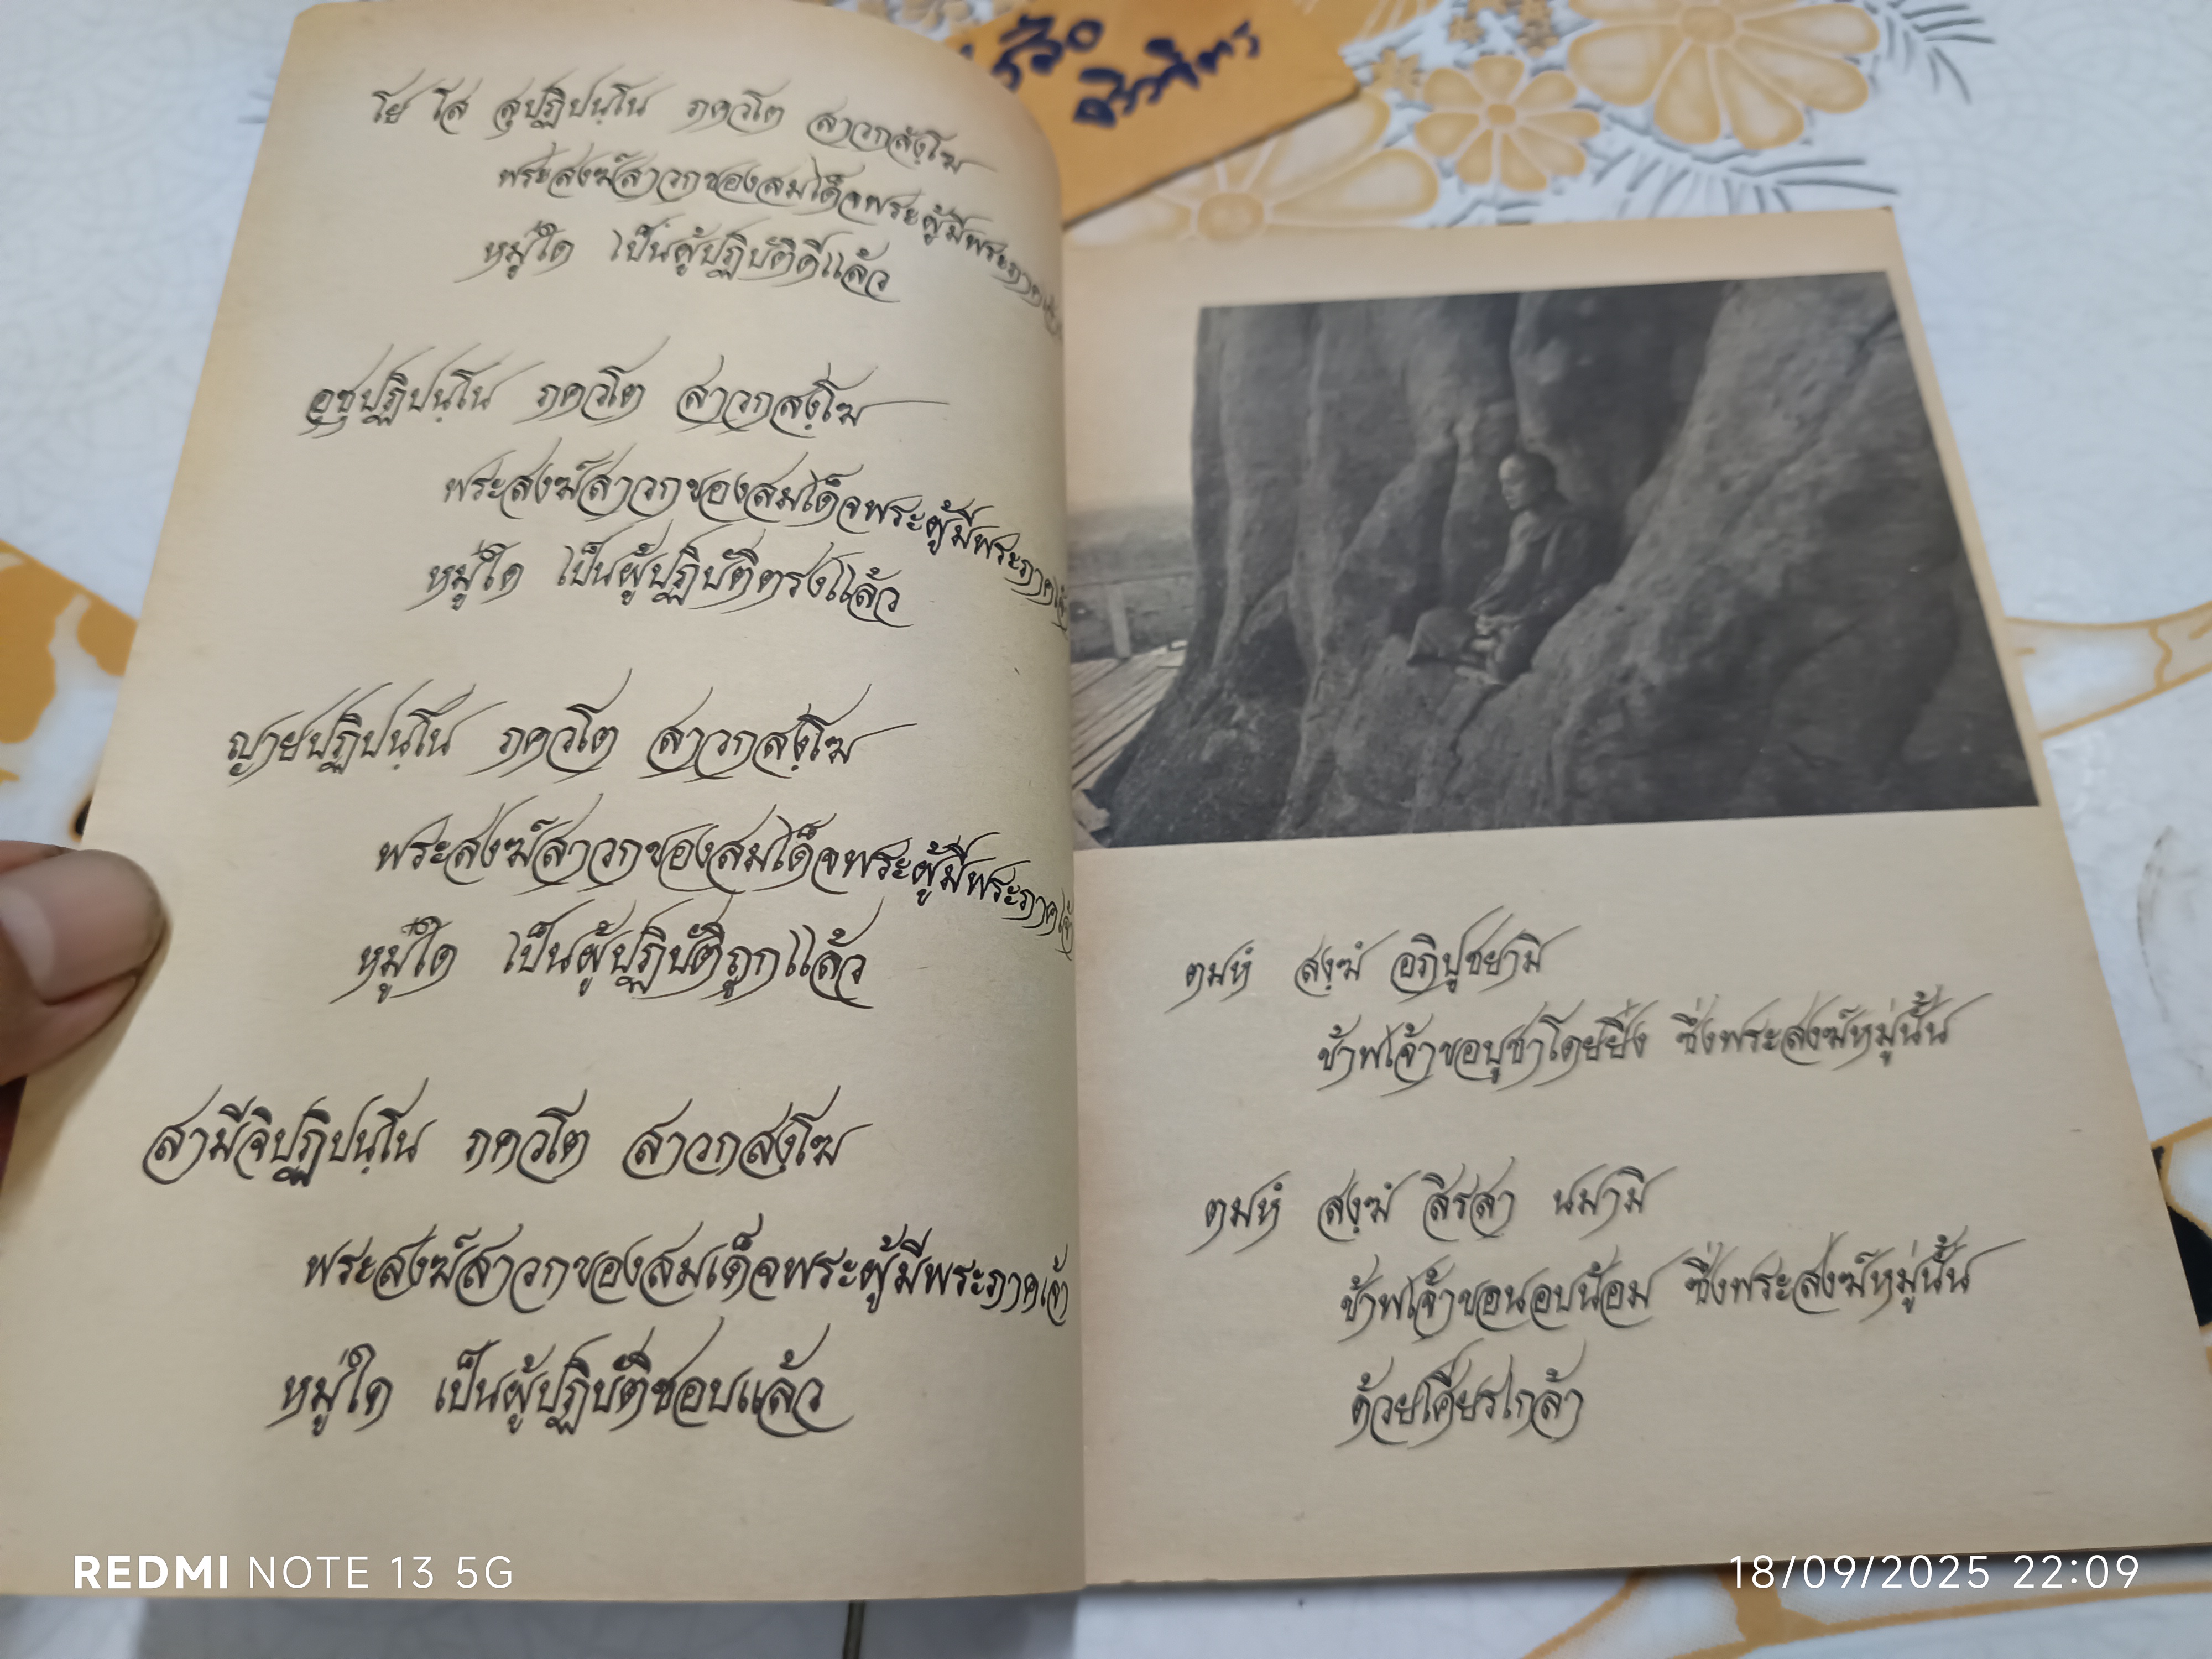 โย โส สุปฏิปนฺโน ภควโต สาวกสงฺโฆ
พระสงฆ์สาวกของสมเด็จพระผู้มีพระภาคเจ้า
หมู่ใด เป็นผู้ปฏิบัติดีแล้ว
อุชุปฏิปนฺโน ภควโต สาวกสงฺโฆ
พระสงฆ์สาวกของสมเด็จพระผู้มีพระภาคเจ้า
หมู่ใด เป็นผู้ปฏิบัติตรงแล้ว
ญายปฏิปนฺโน ภควโต สาวกสงฺโฆ
พระสงฆ์สาวกของสมเด็จพระผู้มีพระภาคเจ้า
หมู่ใด เป็นผู้ปฏิบัติถูกแล้ว
สามีจิปฏิปนฺโน ภควโต สาวกสงฺโฆ
พระสงฆ์สาวกของสมเด็จพระผู้มีพระภาคเจ้า
หมู่ใด เป็นผู้ปฏิบัติชอบแล้ว
ตมหํ สงฺฆํ อภิปูชยามิ
ข้าพเจ้าขอบูชาโดยยิ่ง ซึ่งพระสงฆ์หมู่นั้น
ตมหํ สงฺฆํ สิรสา นมามิ
ข้าพเจ้าขอนอบน้อม ซึ่งพระสงฆ์หมู่นั้น
ด้วยเศียรเกล้า
REDMI NOTE 13 5G
18/09/2025 22:09